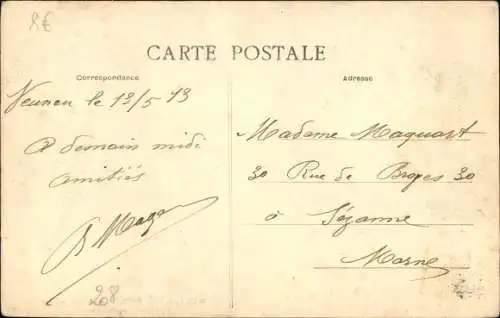 8€
CARTE POSTALE
Correspondance
Adresse
le 13/5 13
A demain midi
amitiés
Madame Maquart
30 Rue de Broyes 30
à Sézanne
Marne
208